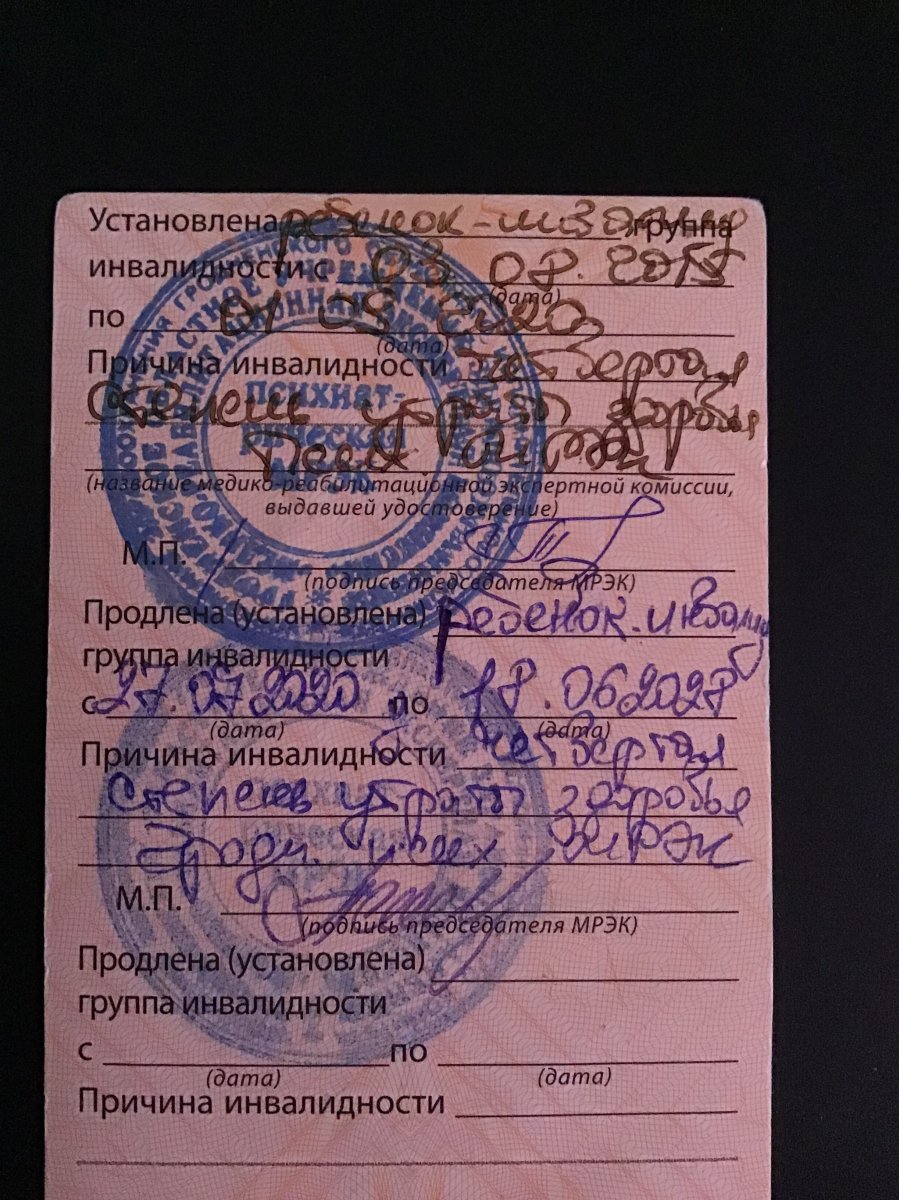 Установлена ребенок-инвалид группа
инвалидности с 03 08. 2015
(дата)
по 01 09 2020
(дата)
Причина инвалидности четвертая
степень утраты здоровья
Псих МРЭК
(название медико-реабилитационной экспертной комиссии,
выдавшей удостоверение)
психиат-
рическая
М.П.
(подпись председателя МРЭК)
Продлена (установлена) ребенок-инвалид
группа инвалидности
с 27.07.2020 по 18.06.2027
(дата) (дата)
Причина инвалидности четвертая
степень утраты здоровья
псих. МРЭК
М.П.
(подпись председателя МРЭК)
Продлена (установлена)
группа инвалидности
с по
(дата) (дата)
Причина инвалидности